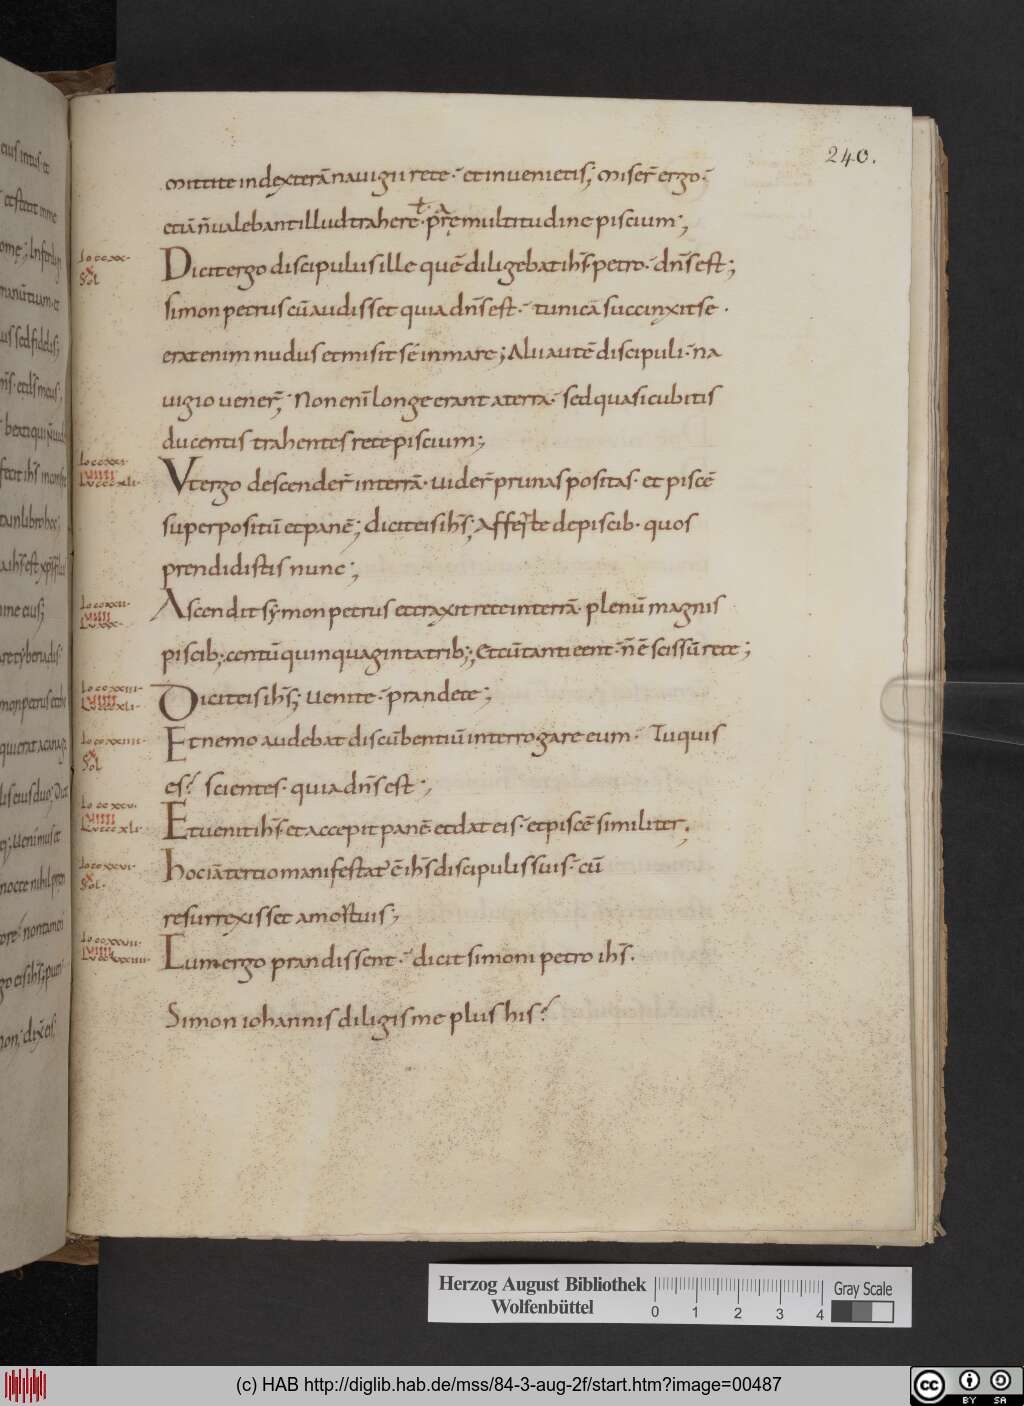 240.
mittite in dexterā nauigii rete · et inuenietis; miser̄ ergo ·
et iā n̄ ualebant illud trahere · p̄rę multitudine piscium;
Io ccxx·
x̊
Sol
Dicit ergo discipulus ille quē diligebat ihs̄ · petro · dn̄s est;
simon petrus cū audisset quia dn̄s est · tunicā succinxit se ·
erat enim nudus et misit sé in mare; Alii autē discipuli · na
uigio uener̄; Non eni longe erant a terra · sed quasi cubitis
ducentis trahentes rete piscium;
Io ccxxi·
Lu cccxli·
Vt ergo descender̄ in terrā · uider̄ prunas positas · et piscē
superpositū et panē; dicit eis ihs̄; Afferte de piscib· quos
prendidistis nunc;
Io ccxxii·
Lu xxx·
Ascendit symon petrus et traxit rete in terrā · plenū magnis
piscib; centū quinquaginta trib;; Et cū tanti eent · n̄ ē scissū rete;
Io ccxxiii·
Lu cccxli·
Dicit eis ihs̄; uenite · prandete;
Io ccxxiiii·
x̊
Sol
Et nemo audebat discūbentiū interrogare eum · Tu quis
es? scientes · quia dn̄s est;
Io ccxxv·
Lu cccxli·
Et uenit ihs̄ et accepit panē · et dat eis · et piscē similiter;
Io ccxxvi·
x̊
Sol·
hoc iā tertio manifestat' ē ihs̄ discipulis suis · cū
resurrexisset a mortuis;
Io ccxxvii·
Cum ergo prandissent · dicit simoni petro ihs̄.
Simon iohannis diligis me plus his?
Herzog August Bibliothek
Wolfenbüttel
0 1 2 3 4
Gray Scale
(c) HAB http://diglib.hab.de/mss/84-3-aug-2f/start.htm?image=00487
cc BY SA